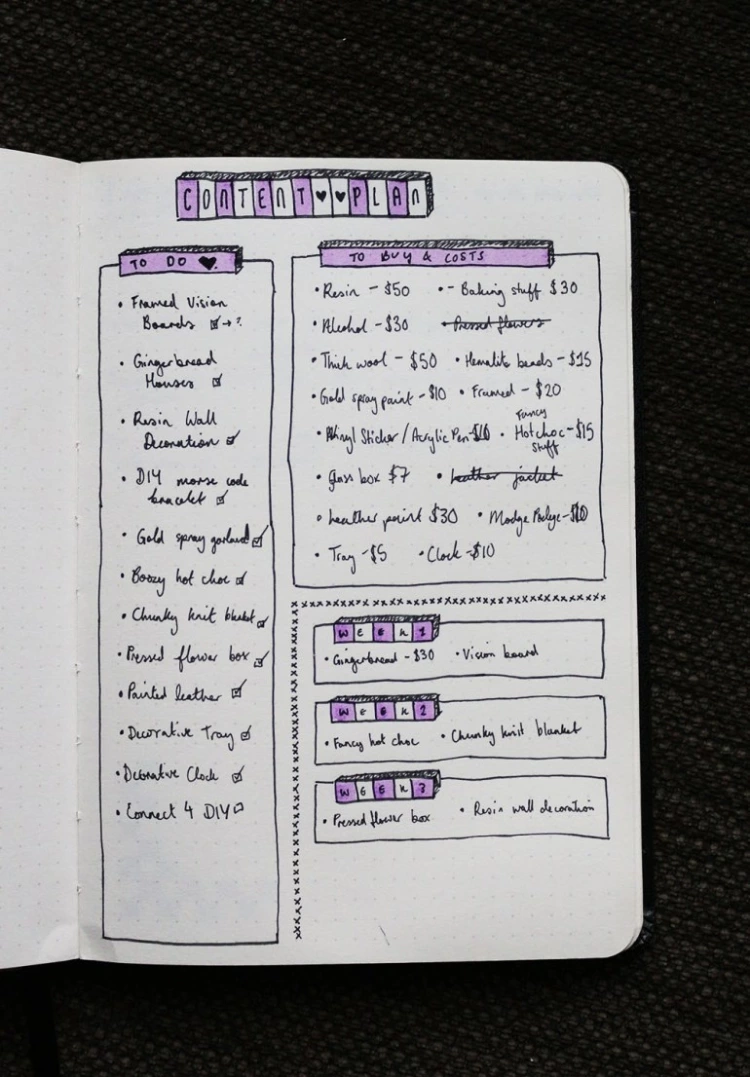 CONTENT ♥♥ PLAN
TO DO ♥
• Framed Vision
Boards ☑→?
• Gingerbread
Houses ☑
• Resin Wall
Decoration ☑
• DIY morse code
bracelet ☑
• Gold spray garland ☑
• Boozy hot choc ☑
• Chunky knit blanket ☑
• Pressed flower box ☑
• Painted leather ☑
• Decorative Tray ☑
• Decorative Clock ☑
• Connect 4 DIY ☐
TO BUY & COSTS
• Resin - $50 • - Baking stuff $30
• Alcohol - $30 • Pressed flowers
• Thick wool - $50 • Hematite beads - $15
• Gold spray paint - $10 • Framed - $20
• Vinyl Sticker / Acrylic Pen - $10 • Fancy Hot choc - $15
stuff
• Glass box $7 • Leather jacket
• Leather paint $30 • Modge Podge - $10
• Tray - $5 • Clock - $10
WEEK 1
• Gingerbread - $30 • Vision board
WEEK 2
• Fancy hot choc • Chunky knit blanket
WEEK 3
• Pressed flower box • Resin wall decoration